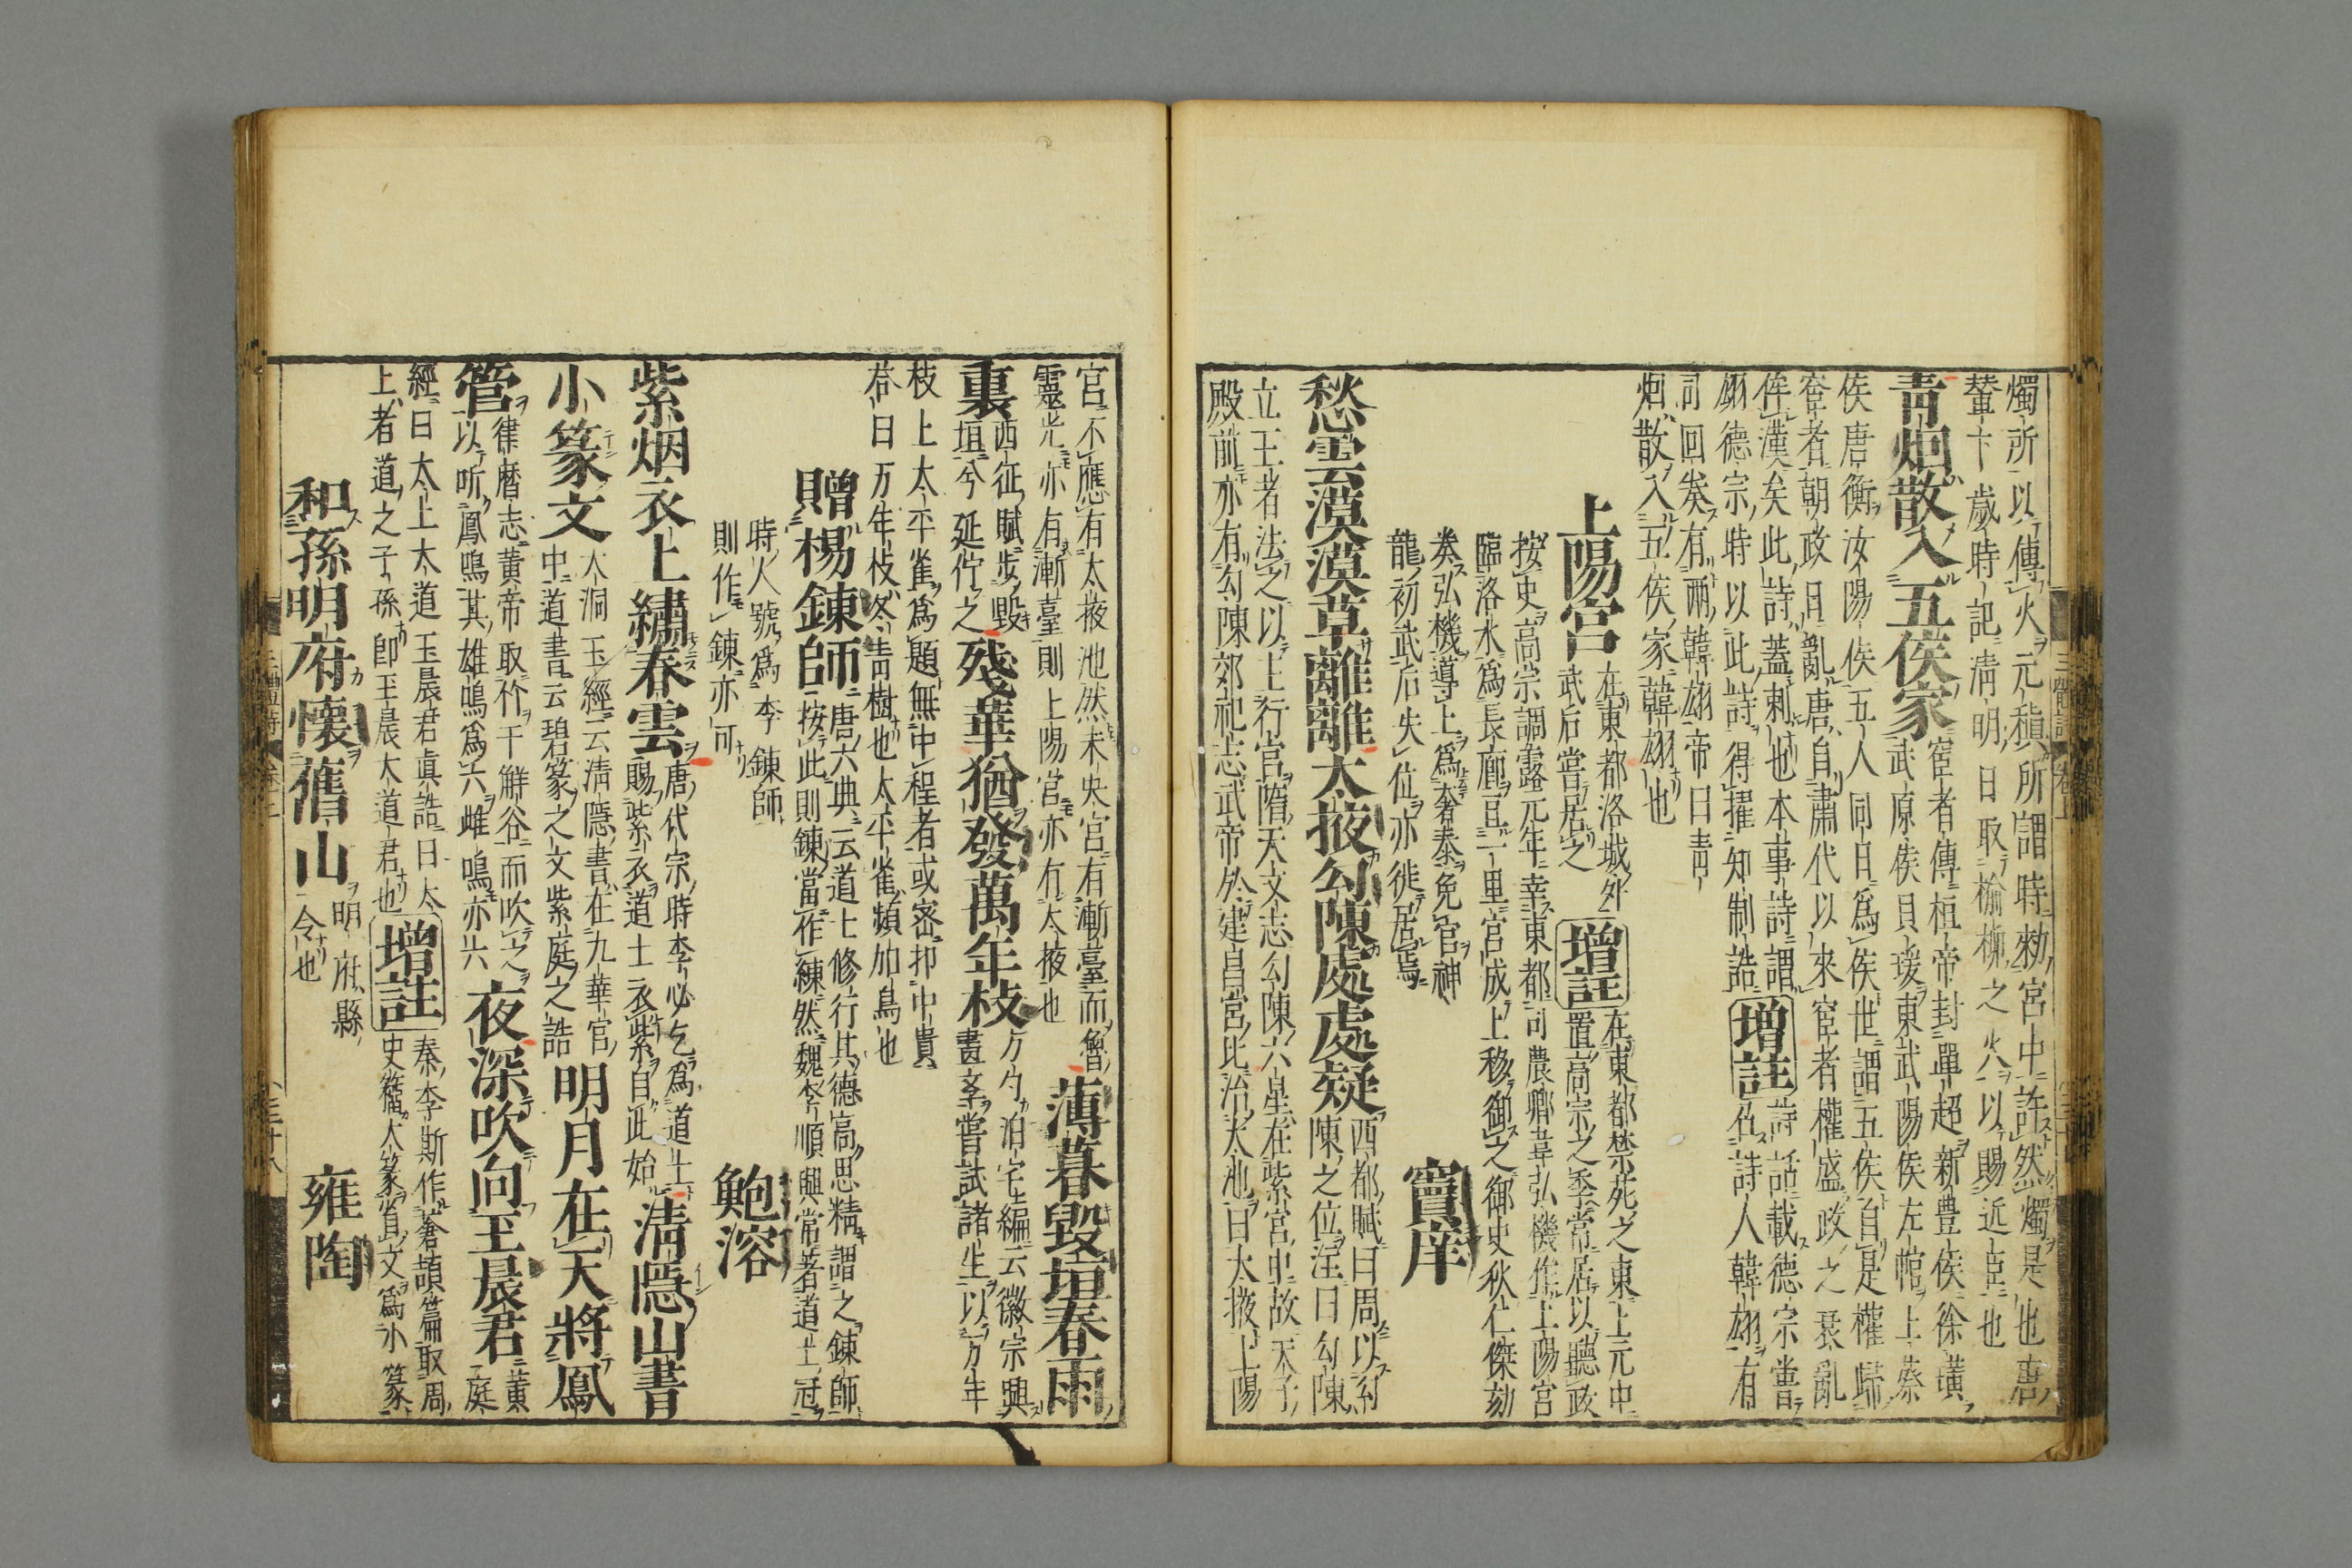 燭所以傳火元稹所謂時勑宮中許然燭是也唐
輦下歲時記淸明日取榆柳之火以賜近臣也
靑烟散入五侯家
宦者傳桓帝封單超新豊侯徐璜
武原侯貝瑗東武陽侯左悺上蔡
侯唐衡汝陽侯五人同日爲侯世謂五侯自是權歸
宦者朝政日亂唐自肅代以來宦者權盛政之衰亂
侔漢矣此詩蓋刺也本事詩謂
翃德宗時以此詩得擢知制誥
增註
詩話載德宗嘗
名詩人韓翃有
司回奏有兩韓翃帝曰靑
烟散入五侯家韓翃也
上陽宮
在東都洛城外
武后嘗居之
增註
在東都禁苑之東上元中
置高宗之季常居以聽政
按史高宗調露元年幸東都司農卿韋弘機作上陽宮
臨洛水爲長廊亘一里宮成上移御之御史狄仁傑劾
奏弘機導上爲奢泰免官神
龍初武后失位亦徙居焉
竇庠
愁雲漠漠草離離太掖勾陳處處疑
西都賦曰周以勾
陳之位注曰勾陳
立王者法之以上行宮隋天文志勾陳六星在紫宮中故天子
殿前亦有勾陳郊祀志武帝於建昌宮比治太池曰太掖上陽
宮不應有太掖池然未央宮有漸臺而魯
靈光亦有漸臺則上陽宮亦有太掖也
薄暮毀垣春雨
裏
西征賦步毀
垣兮延佇之
殘華猶發萬年枝
方勺泊宅編云徽宗興
畫學嘗試諸生以万年
枝上太平雀爲題無中程者或密扣中貴
荅曰万年枝冬靑樹也太平雀頻加鳥也
贈楊鍊師
唐六典云道士修行其德高思精謂之鍊師
按此則鍊當作練然魏李順興常著道士冠
時人號爲李鍊師
則作鍊亦可
鮑溶
紫烟衣上繡春雲
唐代宗時李必乞爲道士
賜紫衣道士衣紫自此始
淸隱山書
小篆文
大洞玉經云淸隱書在九華宮
中道書云碧篆之文紫庭之誥
明月在天將鳳
管
律曆志黃帝取竹于解谷而吹之
以听鳳鳴其雄鳴爲六雌鳴亦六
夜深吹向玉晨君
黃
庭
經曰太上大道玉晨君眞誥曰太
上者道之子孫卽玉晨大道君也
增註
秦李斯作蒼頡篇取周
史籀大篆省文爲小篆
和孫明府懷舊山
明府縣
令也
雍陶